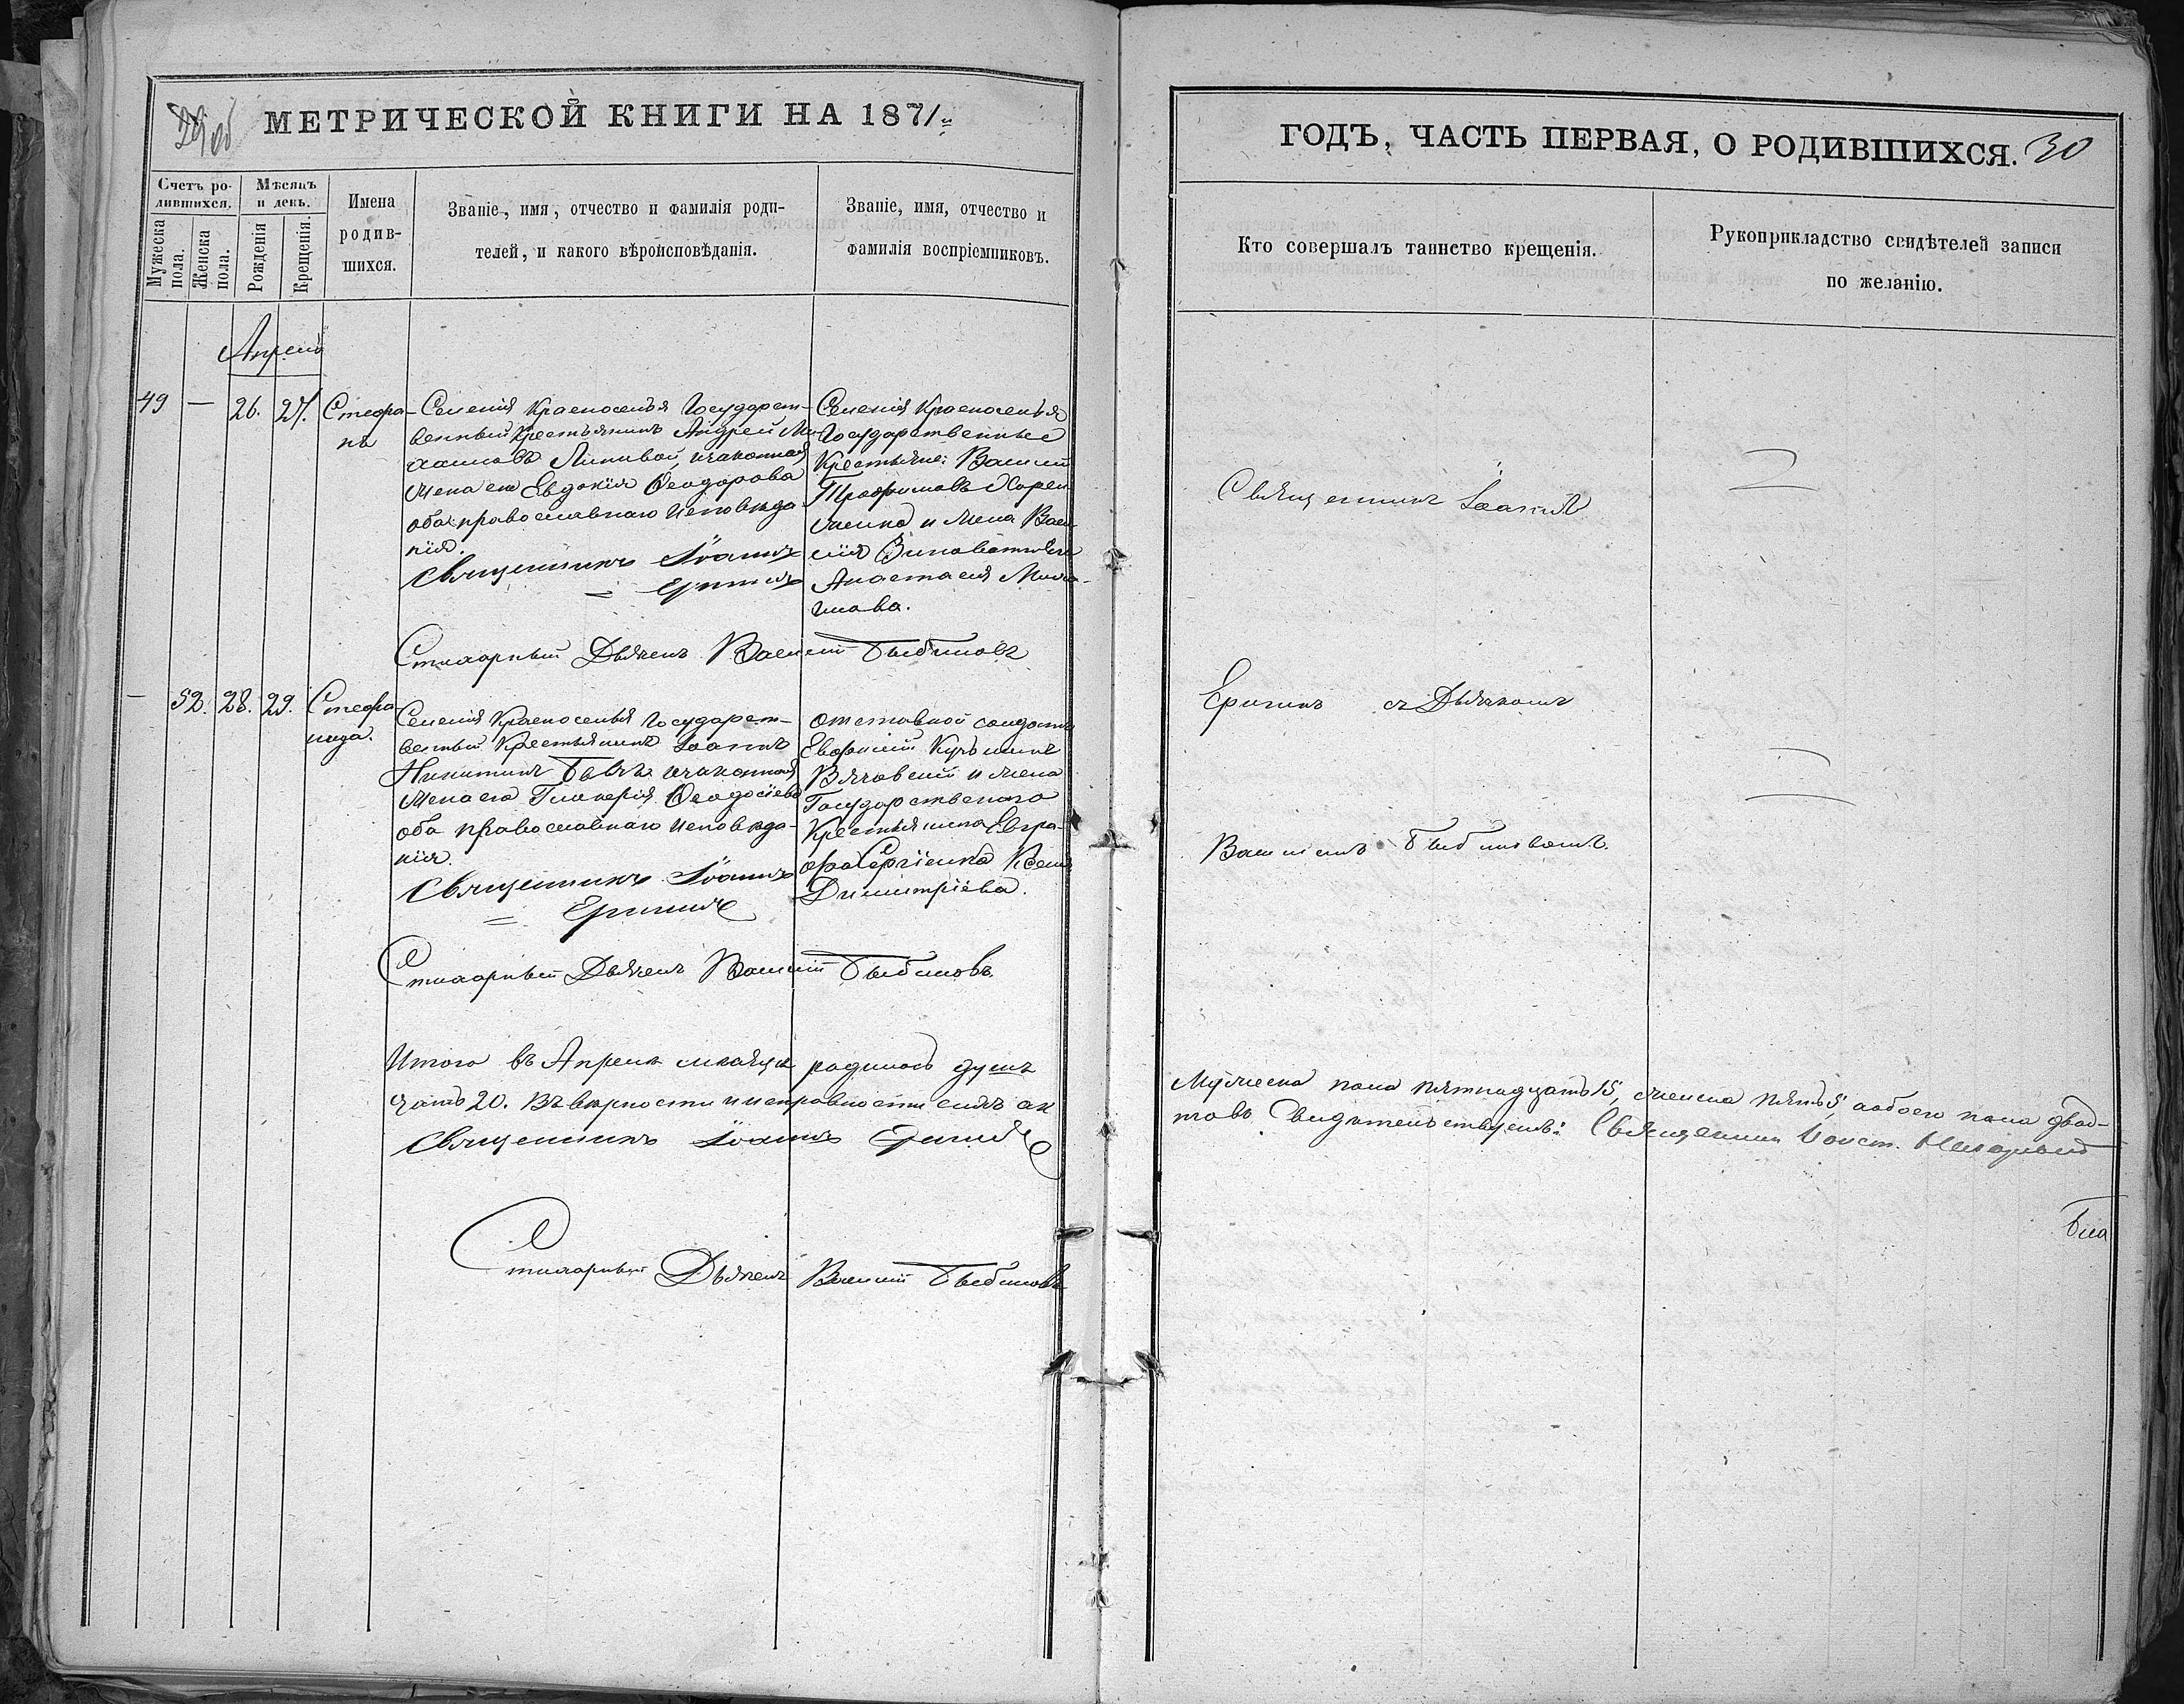 МЕТРИЧЕСКОЙ КНИГИ НА 1871
Счетъ ро-
дившихся.
Мѣсяцъ
и день.
Мужеска
пола.
Женска
пола.
Рожденія
Крещенія.
Имена
родив-
шихся.
Званіе, имя, отчество и фамилія роди-
телей, и какого вѣроисповѣданія.
Званіе, имя, отчество и
фамилія воспріемниковъ.
Апрель
49 — 26. 27.
Стефа-
нъ
Селенія Красноселья Государст-
венный Крестьянинъ Андрей Ми-
хаиловъ изаконная
жена его Евдокія Ѳеодорова
оба православнаго исповѣда-
нія.
Священникъ Іоаннъ
Еригинъ
Селенія Красноселья
Государственные
Крестьяне: Василій
Трофимовъ
и жена Васи-
лія
Анастасія Миха-
илова.
Стихарный Дьячекъ Василій
— 52. 28. 29.
Стефа-
нида.
Селенія Красноселья Государст-
венный Крестьянинъ Іоаннъ
Никитинъ изаконная
жена его Гликерія Ѳеодосіева
оба православнаго исповѣда-
нія.
Священникъ Іоаннъ
Еригинъ
отставной солдатъ
Евфимій
и жена
Государственаго
Крестьянина Евгра-
фа Сергіенка Ксенія
Димитріева.
Стихарный Дьячекъ Василій
Итого въ Апрелѣ мѣсяцѣ родилось душъ
цать 20. Въ вѣрности и исправности сихъ ак
Священникъ Іоаннъ Еригинъ
Стихарный Дьячекъ Василій
ГОДЪ, ЧАСТЬ ПЕРВАЯ, О РОДИВШИХСЯ. 30
Кто совершалъ таинство крещенія.
Рукоприкладство свидѣтелей записи
по желанію.
Священникъ Іоаннъ
Еригинъ съ Дьячкомъ
Василіемъ
Мужеска пола пятнадцать 15, женска пять 5 аобоего пола двад-
товъ свидѣтельствуемъ: Священникъ Конст.